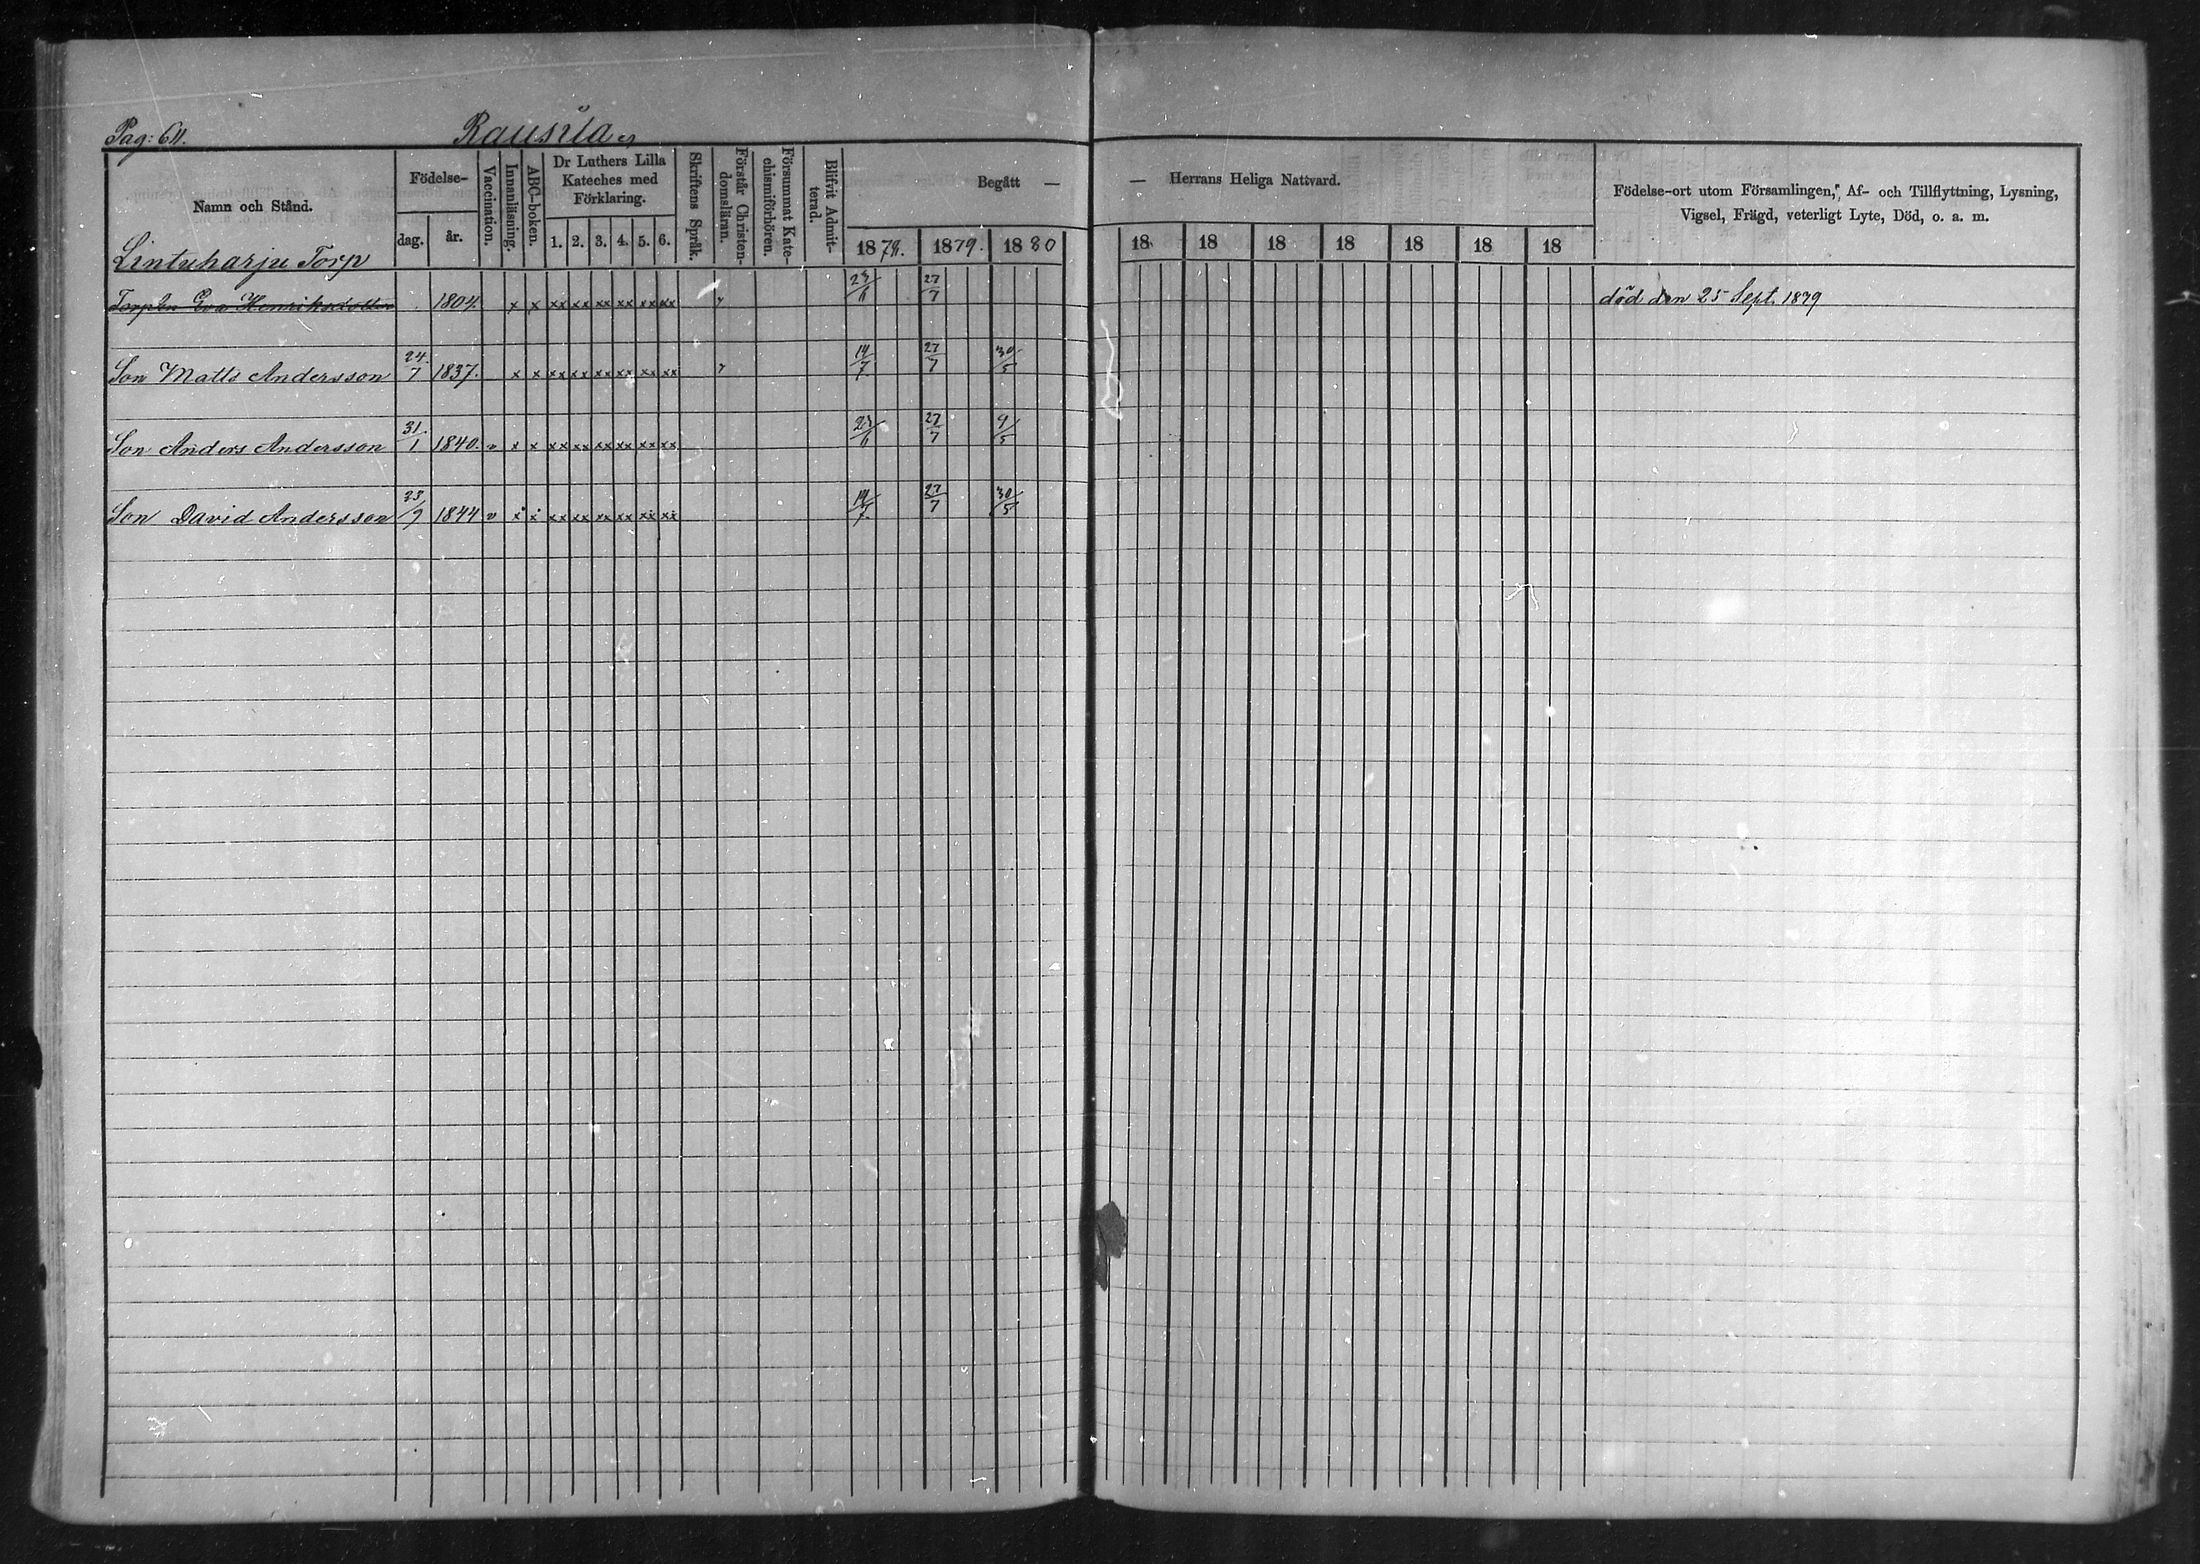 Pag: 64.
Namn och Stånd.
Födelse-
dag.
år.
Vaccination.
Innanläsning.
ABC-boken.
Dr Luthers Lilla
Kateches med
Förklaring.
1. 2. 3. 4. 5. 6.
Skriftens Språk.
Förstår Christen-
domsläran.
Försummat Kate-
chismiförhören.
Blifvit Admit-
terad.
Begått —
1878. 1879. 1880
— Herrans Heliga Nattvard.
18 18 18 18 18 18 18
Födelse-ort utom Församlingen, Af- och Tillflyttning, Lysning,
Vigsel, Frägd, veterligt Lyte, Död, o. a. m.
Lintuharju Torp
Eva Henriksdotter 1804. x x xx xx xx xx xx xx 27/7 död den 25 Sept. 1879
Son Matts Andersson 24/7 1837. x x xx xx xx xx xx xx 14/7 27/7 30/5
Son Anders Andersson 31/1 1840. v x x xx xx xx xx xx xx 27/7 9/5
Son David Andersson 23/9 1844 v x x xx xx xx xx xx xx 14/7 27/7 30/5